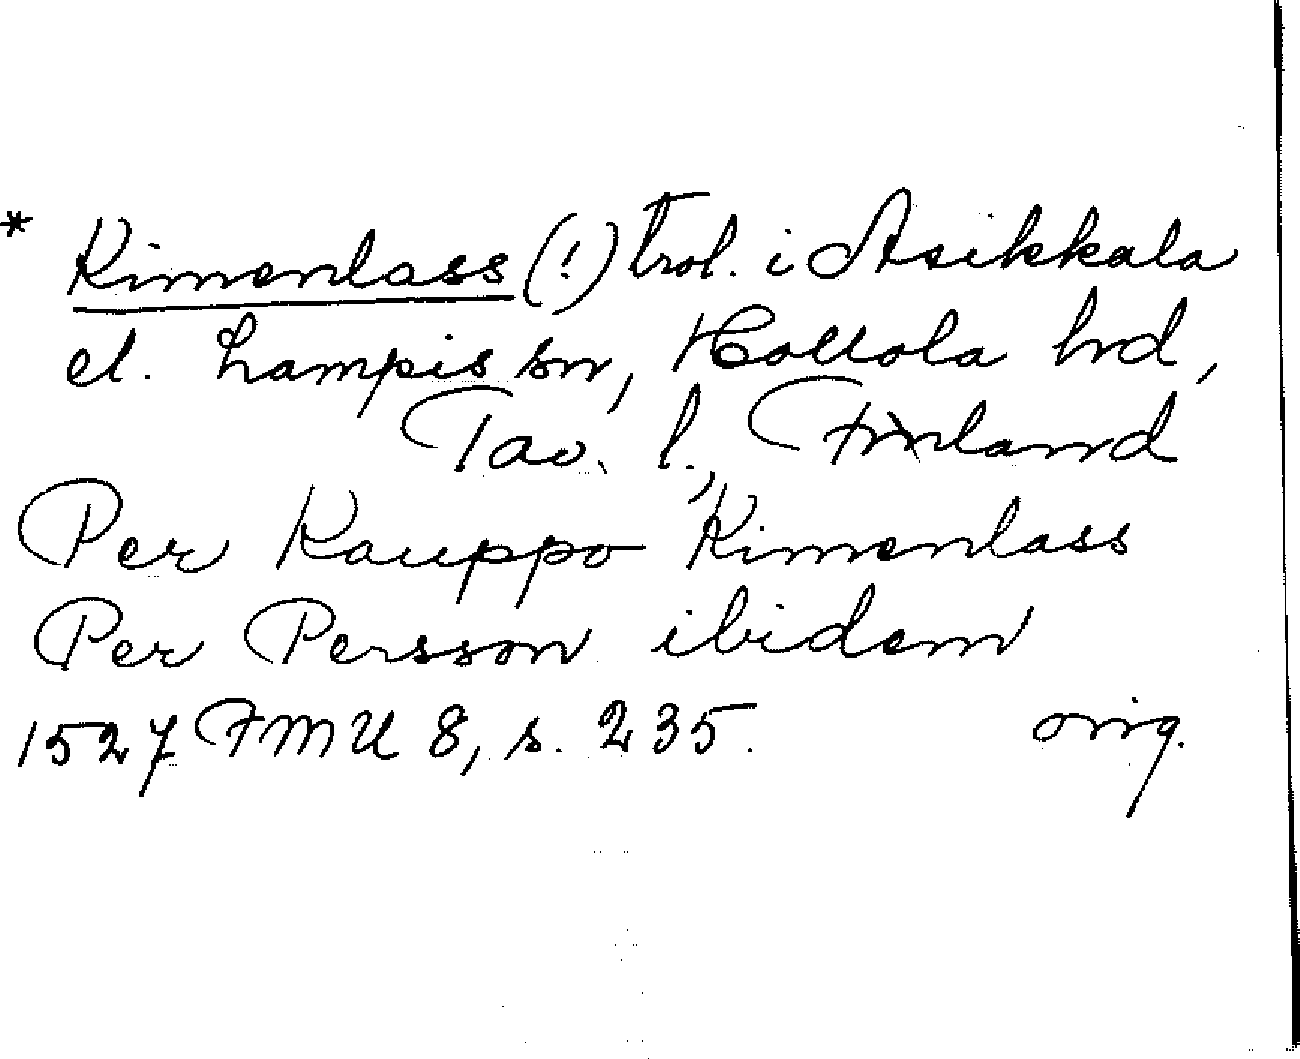 * Kimenlass (!) trol. i Asikkala
el. Lampis sn, Hollola hrd,
Tav. l., Finland
Per Kauppo Kimenlass
Per Persson ibidem
1527 FMU 8, s. 235. orig.